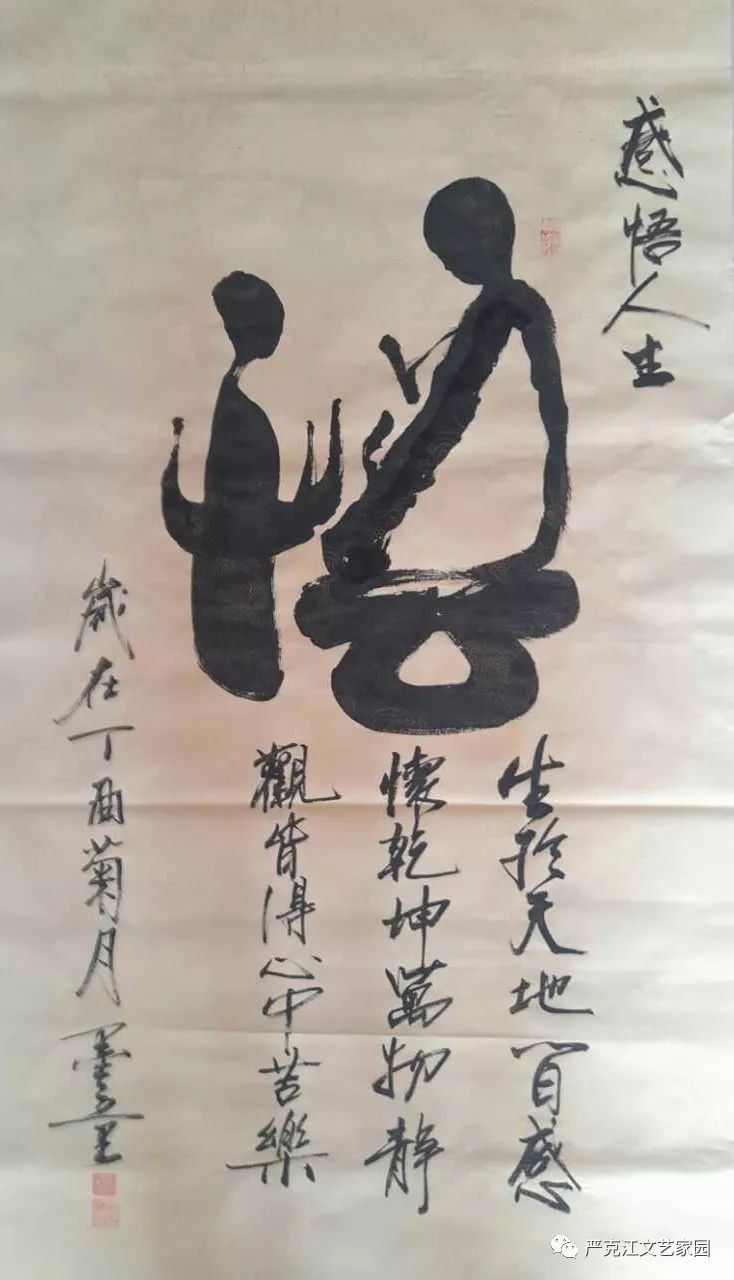 感悟人生
悟
生於天地间感
懷乾坤萬物静
觀皆得心中苦樂
歲在丁酉菊月墨
严克江文艺家园